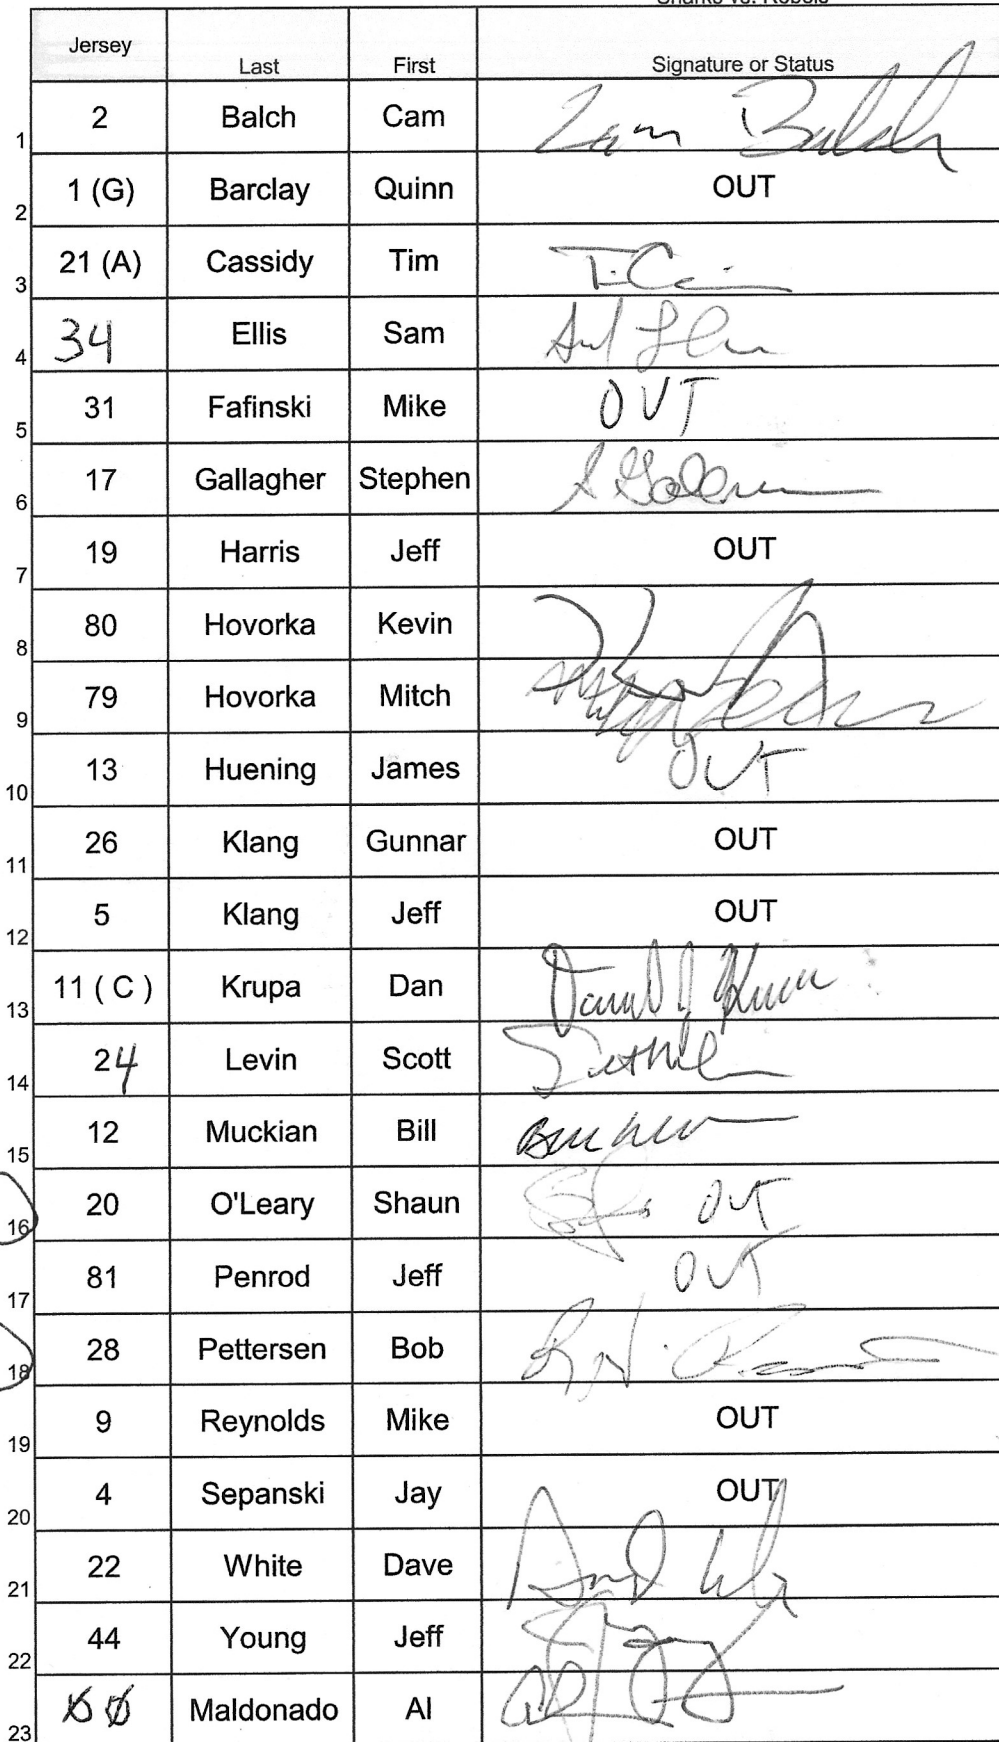 Sharks vs. Rebels
Jersey Last First Signature or Status
1 2 Balch Cam Cam Balch
2 1 (G) Barclay Quinn OUT
3 21 (A) Cassidy Tim
4 34 Ellis Sam
5 31 Fafinski Mike OUT
6 17 Gallagher Stephen
7 19 Harris Jeff OUT
8 80 Hovorka Kevin
9 79 Hovorka Mitch
10 13 Huening James OUT
11 26 Klang Gunnar OUT
12 5 Klang Jeff OUT
13 11 ( C ) Krupa Dan
14 24 Levin Scott
15 12 Muckian Bill
16 20 O'Leary Shaun OUT
17 81 Penrod Jeff OUT
18 28 Pettersen Bob
19 9 Reynolds Mike OUT
20 4 Sepanski Jay OUT
21 22 White Dave
22 44 Young Jeff
23 00 Maldonado Al